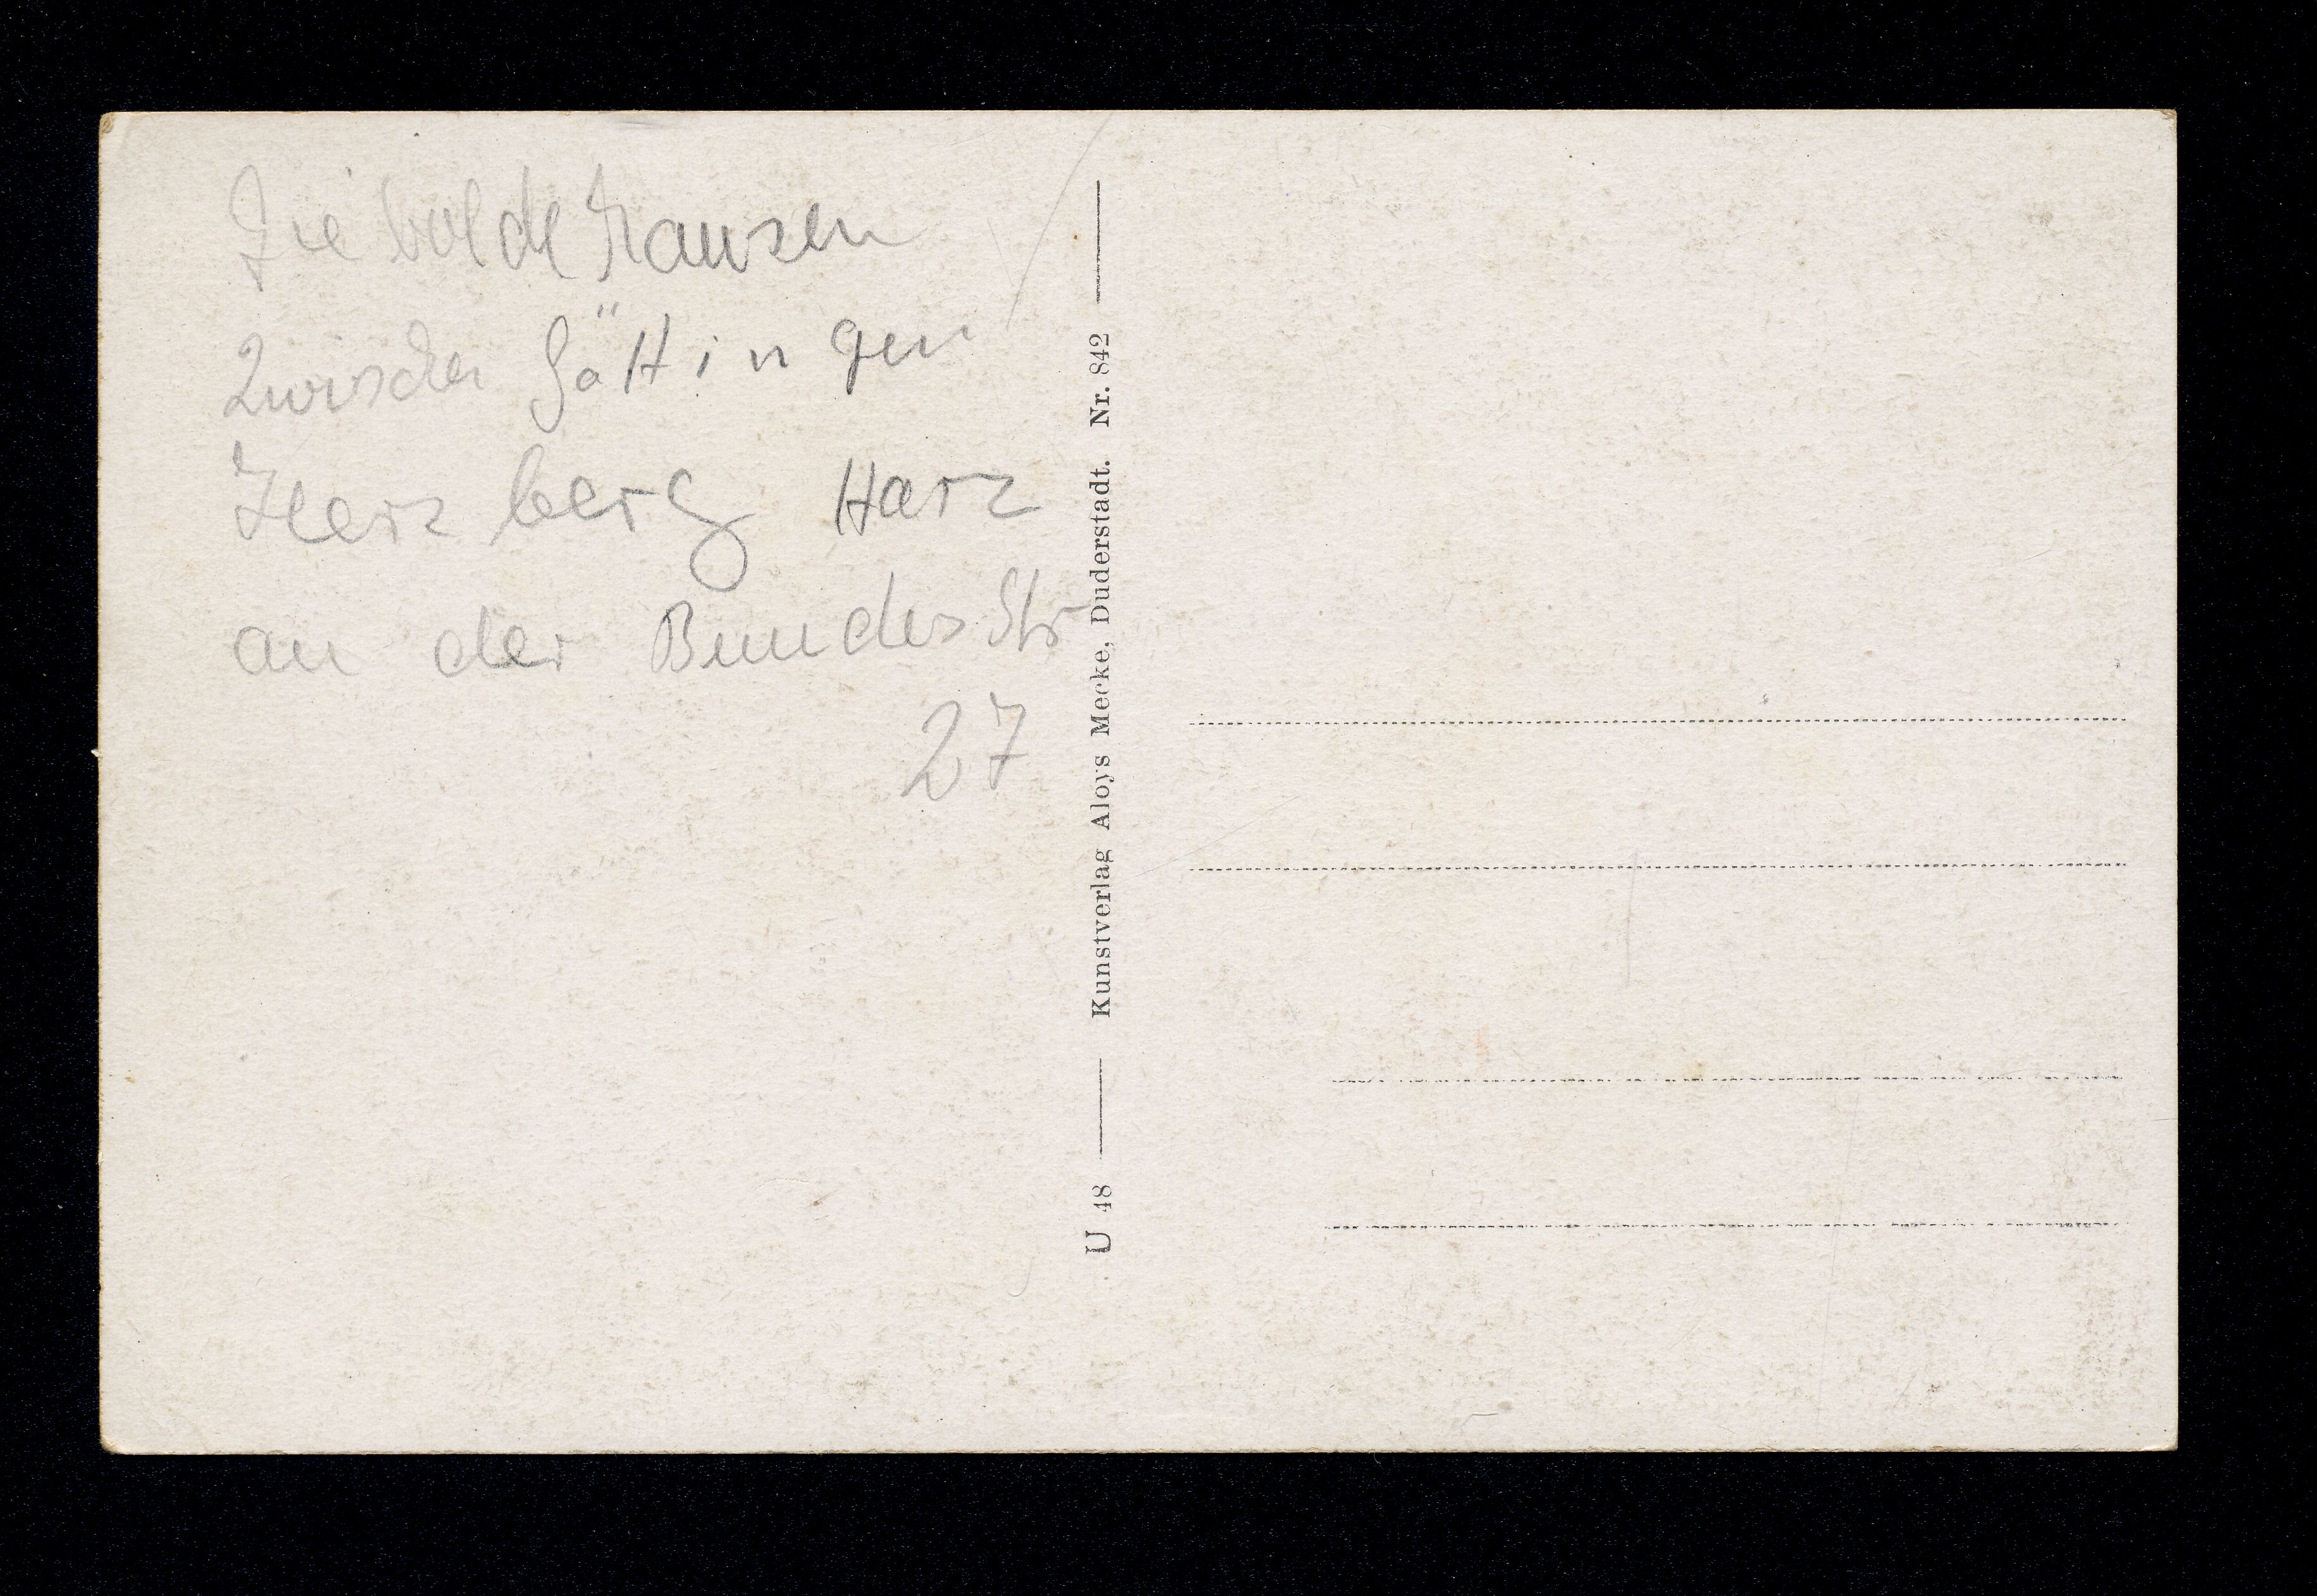 Gieboldehausen
zwischen Göttingen
Herzberg Harz
an der Bundes Str
27
Kunstverlag Aloys Mecke, Duderstadt. Nr. 842
U 48